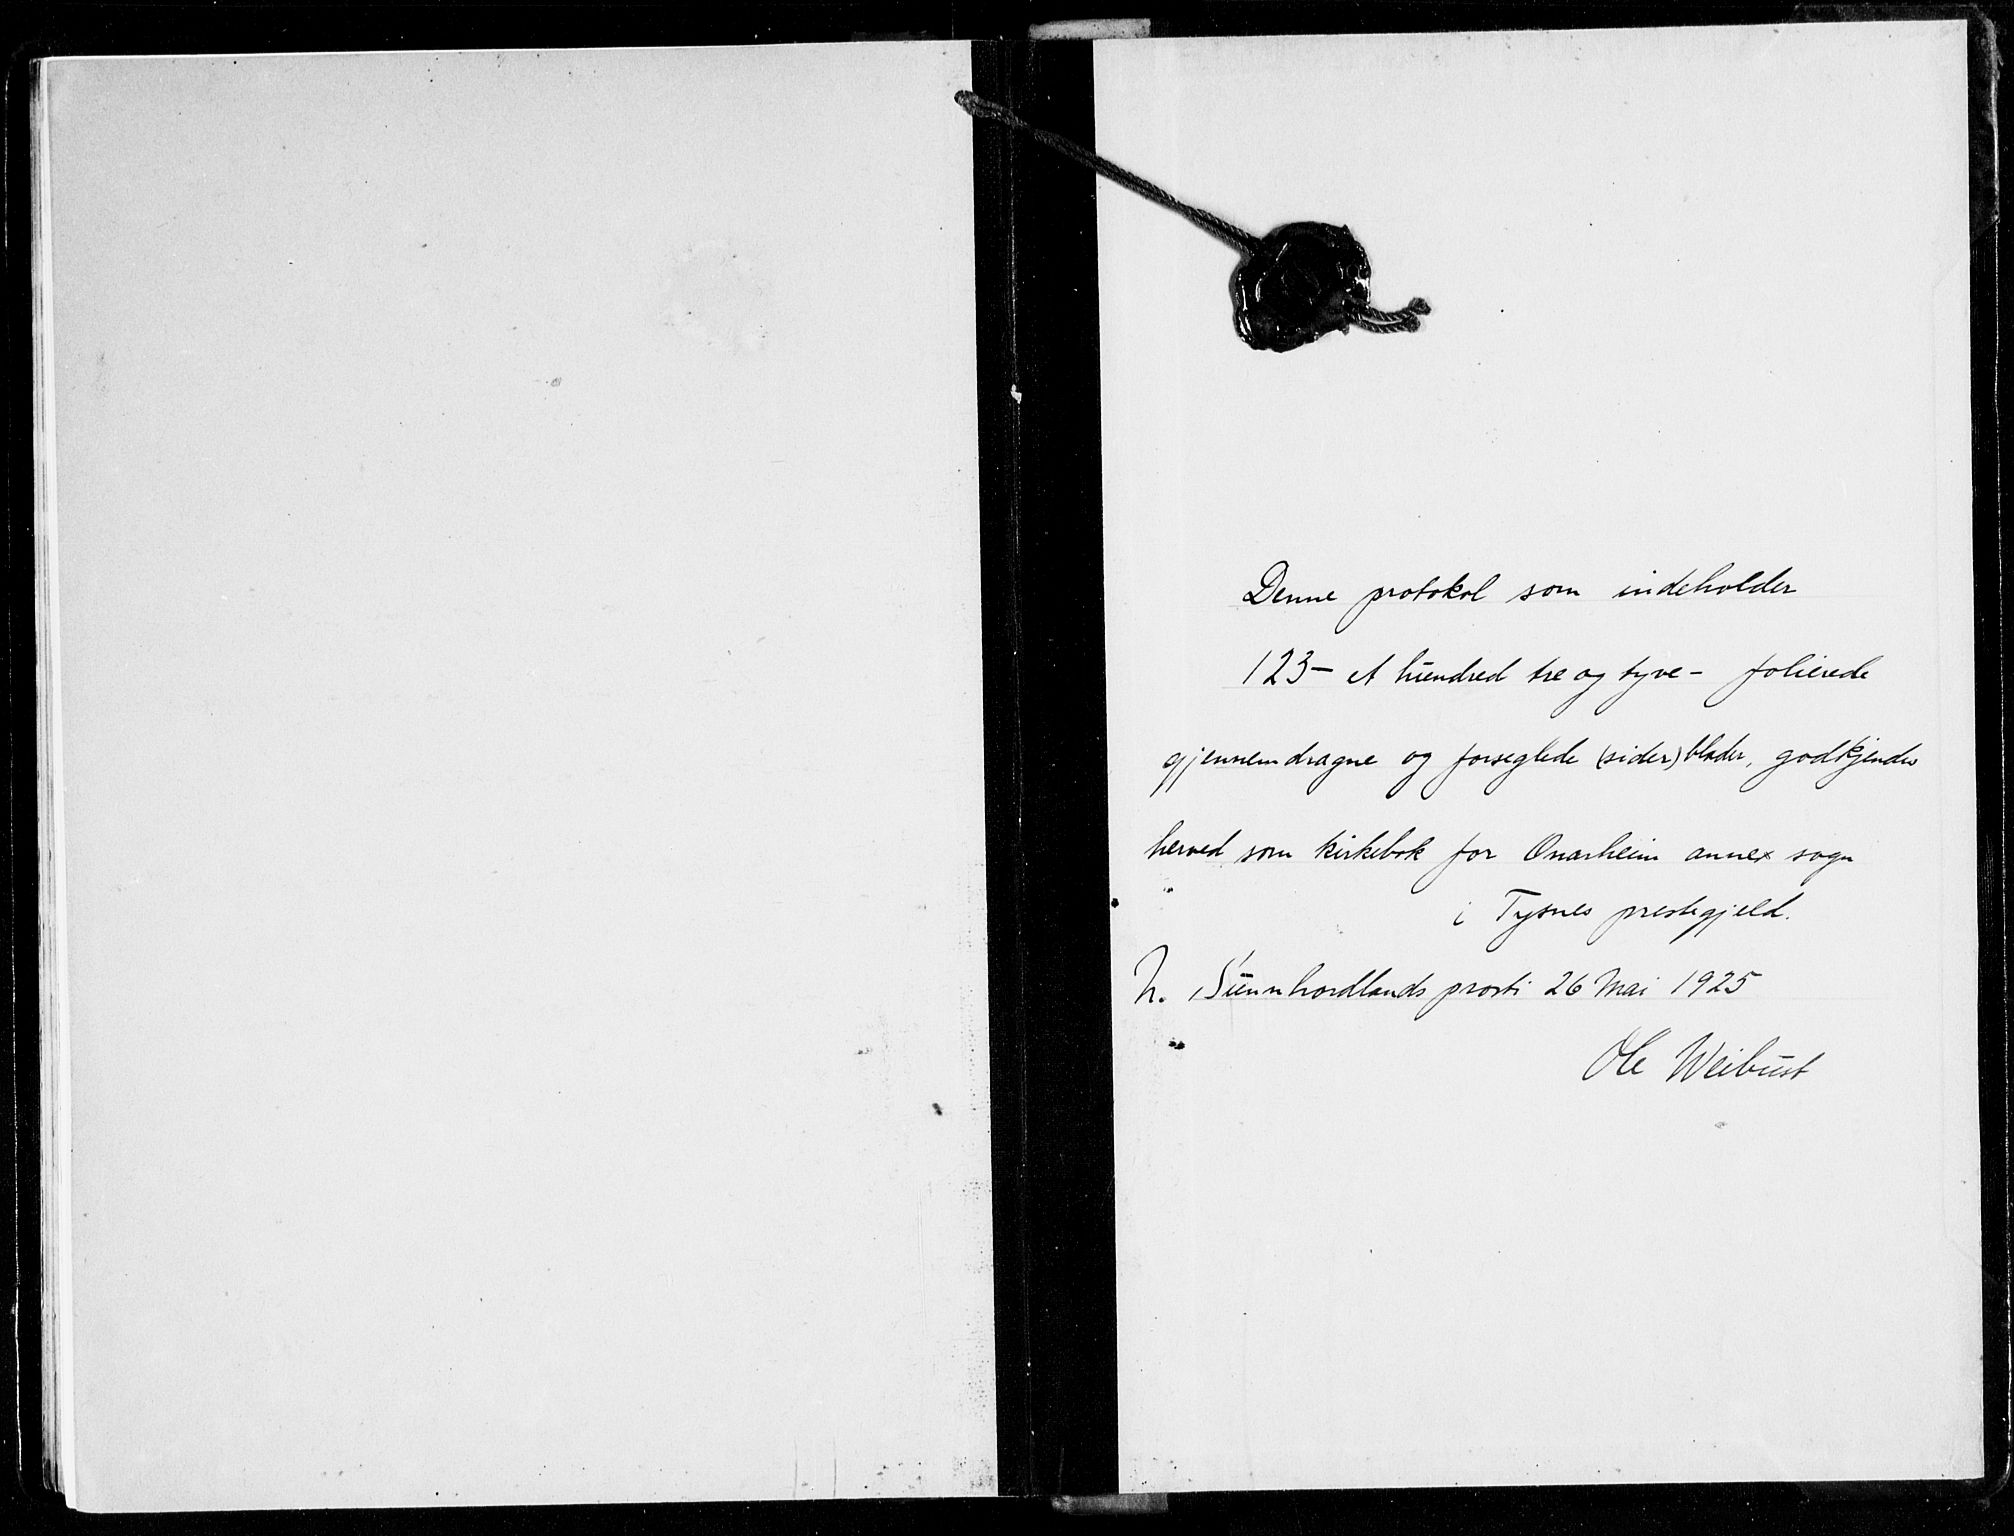 Denne protokol som indeholder
123 – et hundred tre og tyve – folierede
gjennemdragne og forseglede (sider) blader, godkjendes
herved som kirkebok for Onarheim annex sogn
i Tysnes prestegjeld.
N. Sunnhordlands prosti 26 Mai 1925
Ole Weibust